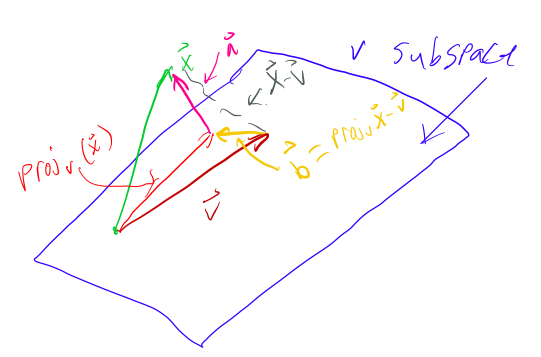 V subspace
x⃗
n⃗
x⃗-v⃗
proj_V(x⃗)
b⃗ = proj x⃗-v⃗
v⃗